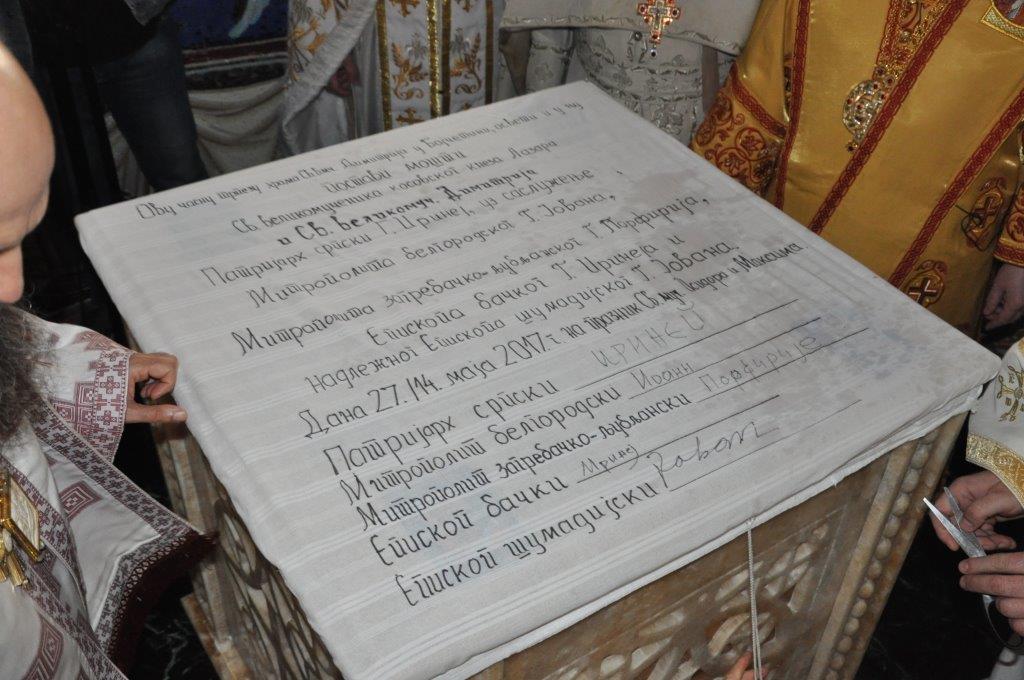 Ову часну трпезу храма Св. вмч. Димитрија у Барнетини, освети и у њу
постави мошти
Св. великомученика косовског кнеза Лазара
и Св. Великомуч. Димитрија
Патријарх српски Г. Иринеј, уз саслужење
Митрополита белгородског Г. Јована,
Митрополита загребачко-љубљанског Г. Порфирија,
Епископа бачког Г. Иринеја и
надлежног Епископа шумадијског Г. Јована.
Дана 27./14. маја 2017. г. на празник Св. муч. Исидора и Максима
Патријарх српски ИРИНЕЈ
Митрополит белгородски Иоанн
Митрополит загребачко-љубљански Порфирије
Епископ бачки Иринеј
Епископ шумадијски Јован